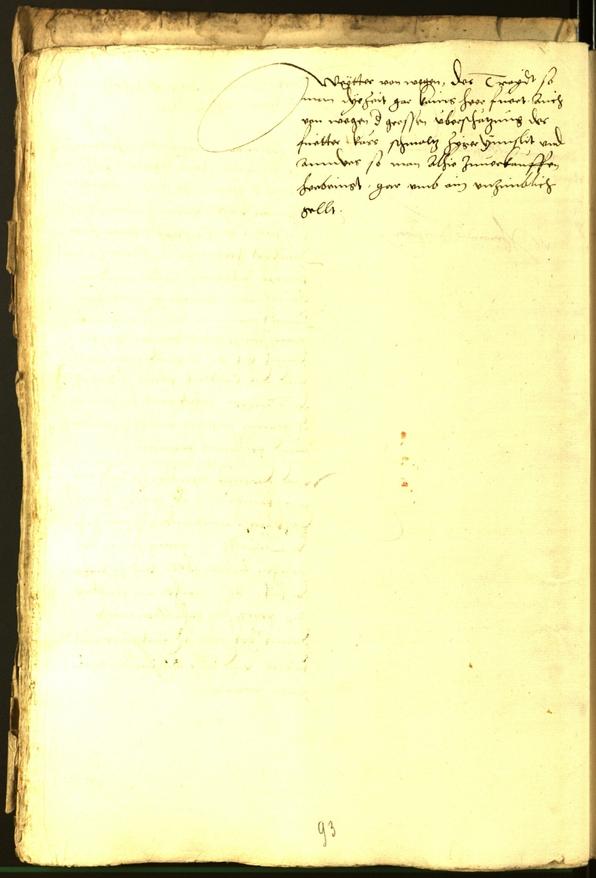 Weytter von wegen der Traydt so
man dyser Zeit gar kains heer fuert Auch
von wegen d grossen uberschatzung der
fuetter käss schmaltz ayer Unnslit und
annders so man alhie zuverkauffen
heerbringt gar umb ain unzimblich
gellt.
93